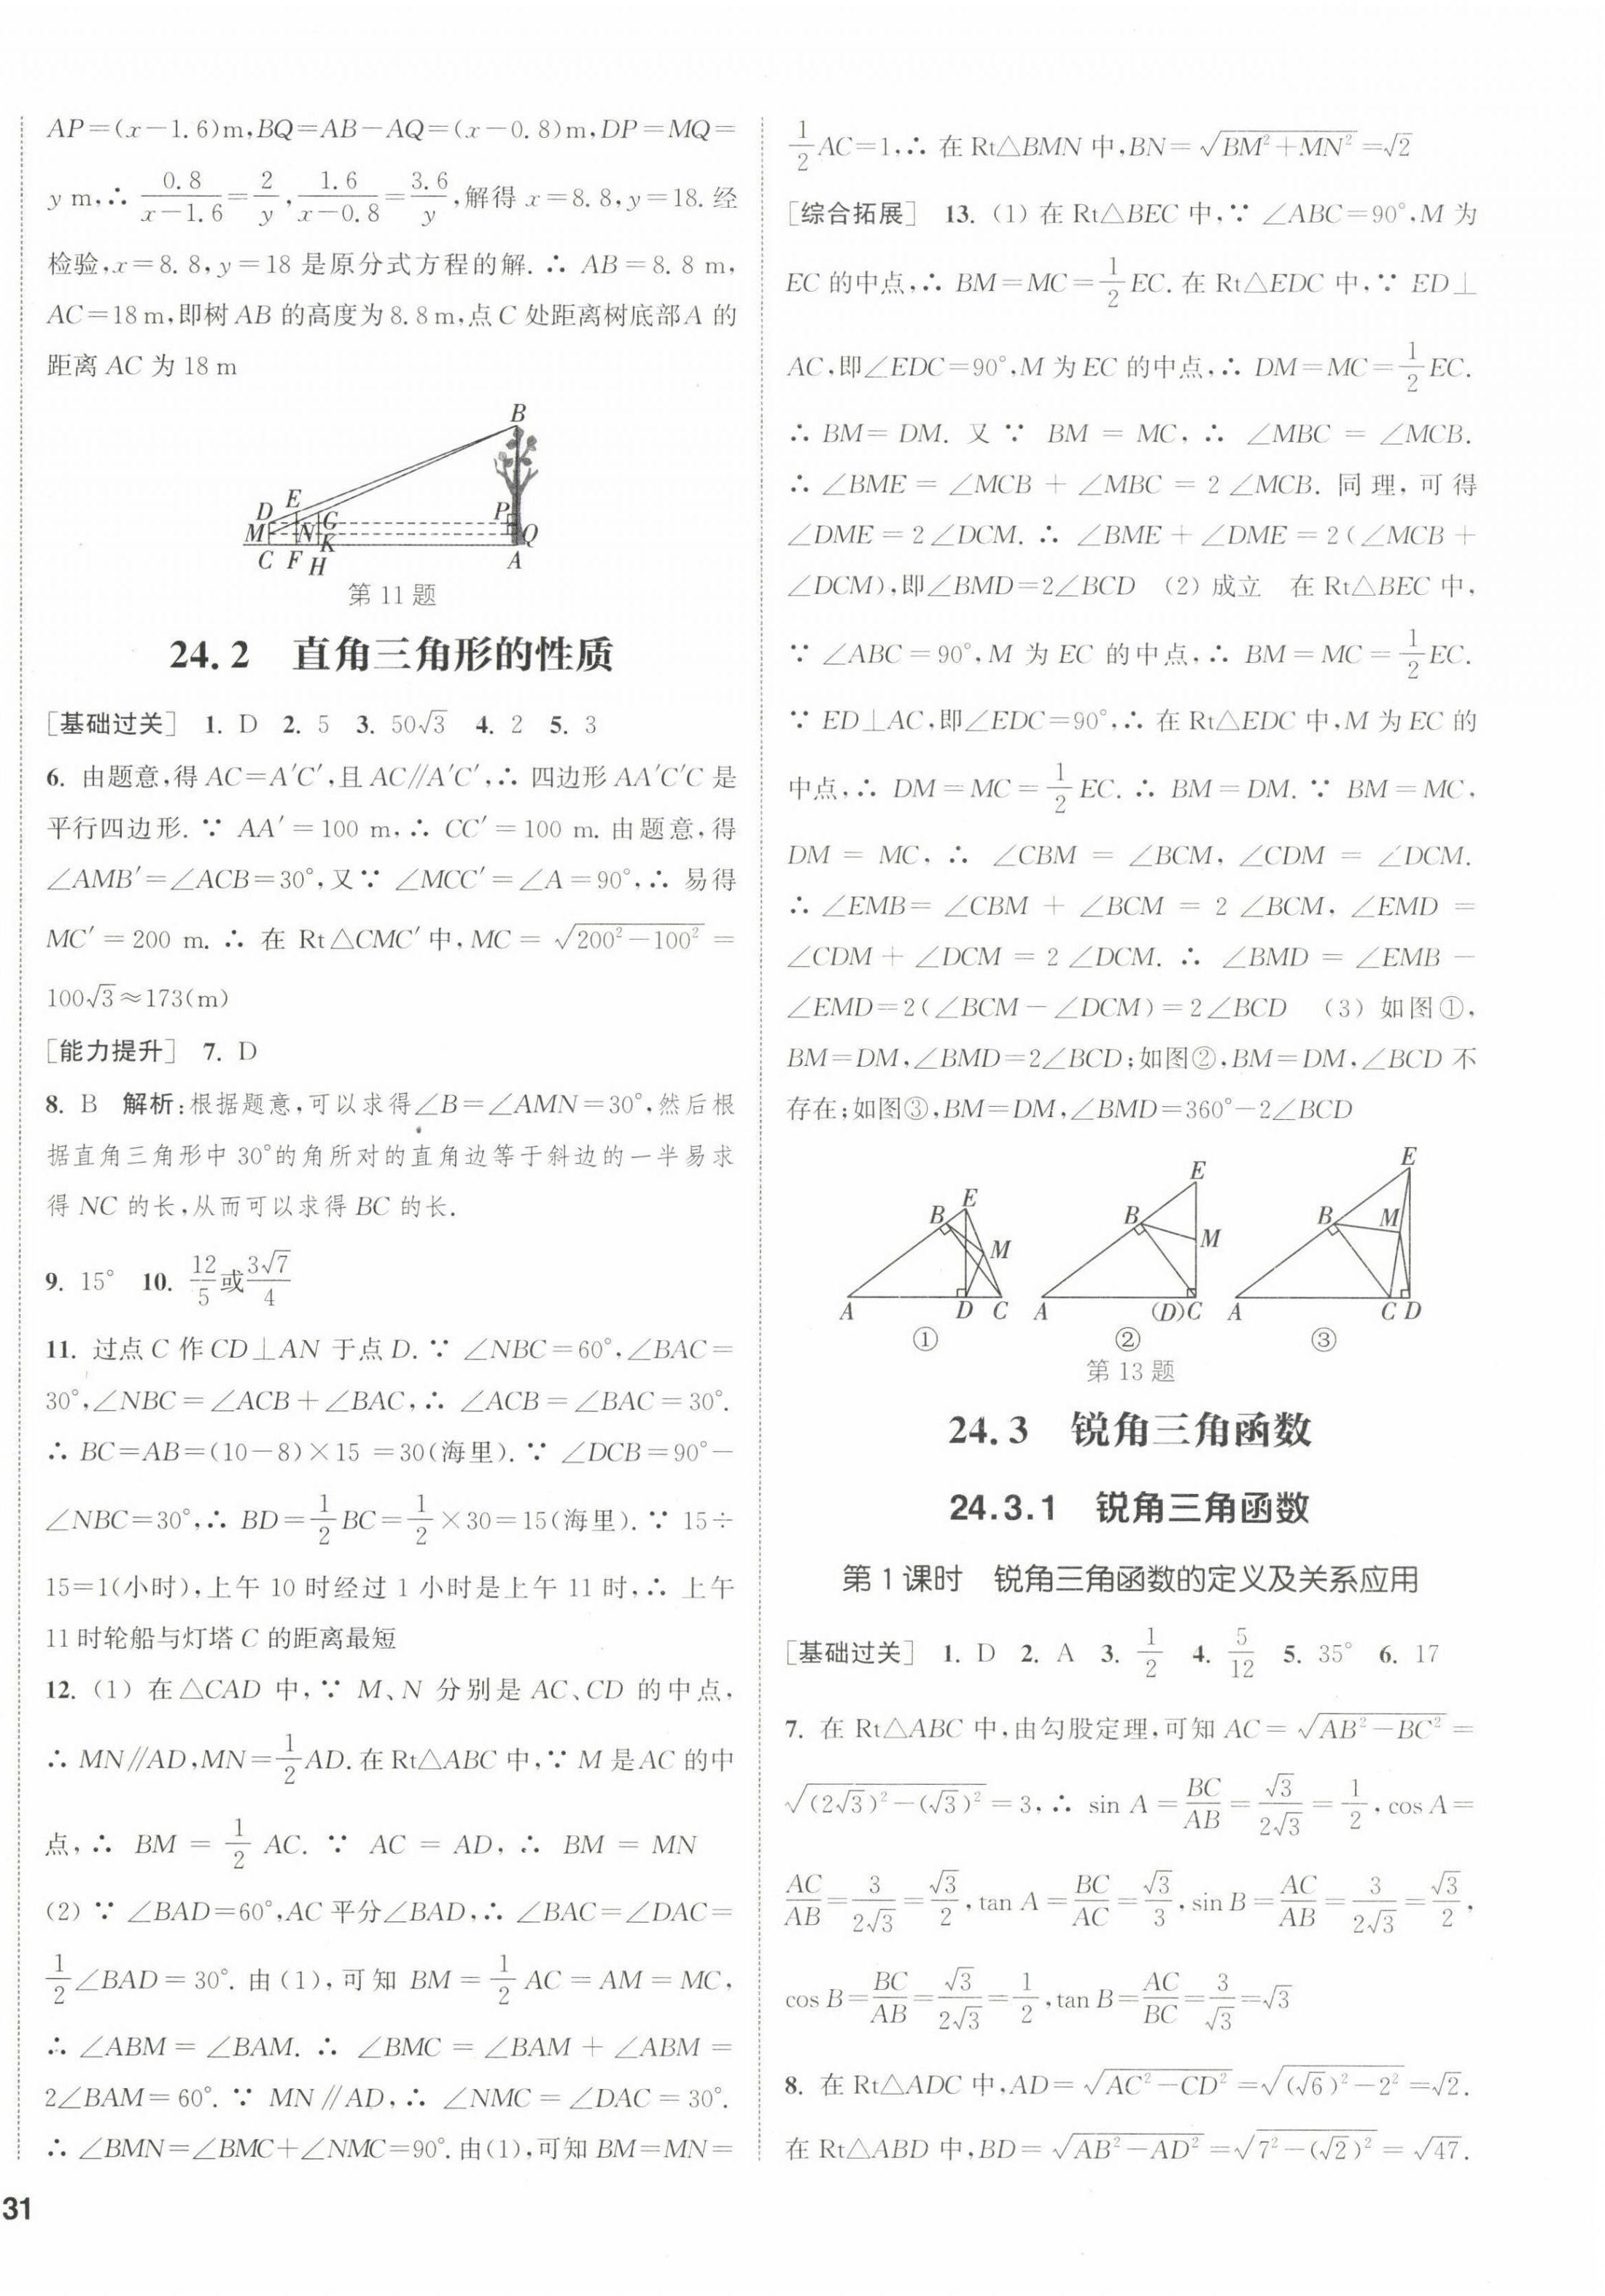 AP=(x-1.6)m,BQ=AB-AQ=(x-0.8)m,DP=MQ=
y m,∴ 0.8/(x-1.6)=2/y,1.6/(x-0.8)=3.6/y,解得 x=8.8,y=18. 经
检验,x=8.8,y=18 是原分式方程的解.∴ AB=8.8 m,
AC=18 m,即树 AB 的高度为 8.8 m,点 C 处距离树底部 A 的
距离 AC 为 18 m
B
D E G P
M N K Q
C F H A
第 11 题
24.2 直角三角形的性质
[基础过关] 1. D 2. 5 3. 50√3 4. 2 5. 3
6. 由题意,得 AC=A′C′,且 AC∥A′C′,∴ 四边形 AA′C′C 是
平行四边形.∵ AA′=100 m,∴ CC′=100 m. 由题意,得
∠AMB′=∠ACB=30°,又∵ ∠MCC′=∠A=90°,∴ 易得
MC′=200 m.∴ 在 Rt△CMC′中,MC=√(200²-100²)=
100√3≈173(m)
[能力提升] 7. D
8. B 解析:根据题意,可以求得∠B=∠AMN=30°,然后根
据直角三角形中 30°的角所对的直角边等于斜边的一半易求
得 NC 的长,从而可以求得 BC 的长.
9. 15° 10. 12/5或3√7/4
11. 过点 C 作 CD⊥AN 于点 D.∵ ∠NBC=60°,∠BAC=
30°,∠NBC=∠ACB+∠BAC,∴ ∠ACB=∠BAC=30°.
∴ BC=AB=(10-8)×15=30(海里).∵ ∠DCB=90°-
∠NBC=30°,∴ BD=1/2BC=1/2×30=15(海里).∵ 15÷
15=1(小时),上午 10 时经过 1 小时是上午 11 时,∴ 上午
11 时轮船与灯塔 C 的距离最短
12. (1) 在△CAD 中,∵ M、N 分别是 AC、CD 的中点,
∴ MN∥AD,MN=1/2AD. 在 Rt△ABC 中,∵ M 是 AC 的中
点,∴ BM=1/2AC.∵ AC=AD,∴ BM=MN
(2) ∵ ∠BAD=60°,AC 平分∠BAD,∴ ∠BAC=∠DAC=
1/2∠BAD=30°. 由(1),可知 BM=1/2AC=AM=MC,
∴ ∠ABM=∠BAM.∴ ∠BMC=∠BAM+∠ABM=
2∠BAM=60°.∵ MN∥AD,∴ ∠NMC=∠DAC=30°.
∴ ∠BMN=∠BMC+∠NMC=90°. 由(1),可知 BM=MN=
31
1/2AC=1,∴ 在 Rt△BMN 中,BN=√(BM²+MN²)=√2
[综合拓展] 13. (1) 在 Rt△BEC 中,∵ ∠ABC=90°,M 为
EC 的中点,∴ BM=MC=1/2EC. 在 Rt△EDC 中,∵ ED⊥
AC,即∠EDC=90°,M 为 EC 的中点,∴ DM=MC=1/2EC.
∴ BM=DM. 又∵ BM=MC,∴ ∠MBC=∠MCB.
∴ ∠BME=∠MCB+∠MBC=2∠MCB. 同理,可得
∠DME=2∠DCM.∴ ∠BME+∠DME=2(∠MCB+
∠DCM),即∠BMD=2∠BCD (2) 成立 在 Rt△BEC 中,
∵ ∠ABC=90°,M 为 EC 的中点,∴ BM=MC=1/2EC.
∵ ED⊥AC,即∠EDC=90°,∴ 在 Rt△EDC 中,M 为 EC 的
中点,∴ DM=MC=1/2EC.∴ BM=DM.∵ BM=MC,
DM=MC,∴ ∠CBM=∠BCM,∠CDM=∠DCM.
∴ ∠EMB=∠CBM+∠BCM=2∠BCM,∠EMD=
∠CDM+∠DCM=2∠DCM.∴ ∠BMD=∠EMB-
∠EMD=2(∠BCM-∠DCM)=2∠BCD (3) 如图①,
BM=DM,∠BMD=2∠BCD;如图②,BM=DM,∠BCD 不
存在;如图③,BM=DM,∠BMD=360°-2∠BCD
E E E
B M B M B M
A D C A (D)C A C D
① ② ③
第 13 题
24.3 锐角三角函数
24.3.1 锐角三角函数
第 1 课时 锐角三角函数的定义及关系应用
[基础过关] 1. D 2. A 3. 1/2 4. 5/12 5. 35° 6. 17
7. 在 Rt△ABC 中,由勾股定理,可知 AC=√(AB²-BC²)=
√((2√3)²-(√3)²)=3,∴ sin A=BC/AB=√3/2√3=1/2,cos A=
AC/AB=3/2√3=√3/2,tan A=BC/AC=√3/3,sin B=AC/AB=3/2√3=√3/2,
cos B=BC/AB=√3/2√3=1/2,tan B=AC/BC=3/√3=√3
8. 在 Rt△ADC 中,AD=√(AC²-CD²)=√((√6)²-2²)=√2.
在 Rt△ABD 中,BD=√(AB²-AD²)=√(7²-(√2)²)=√47.